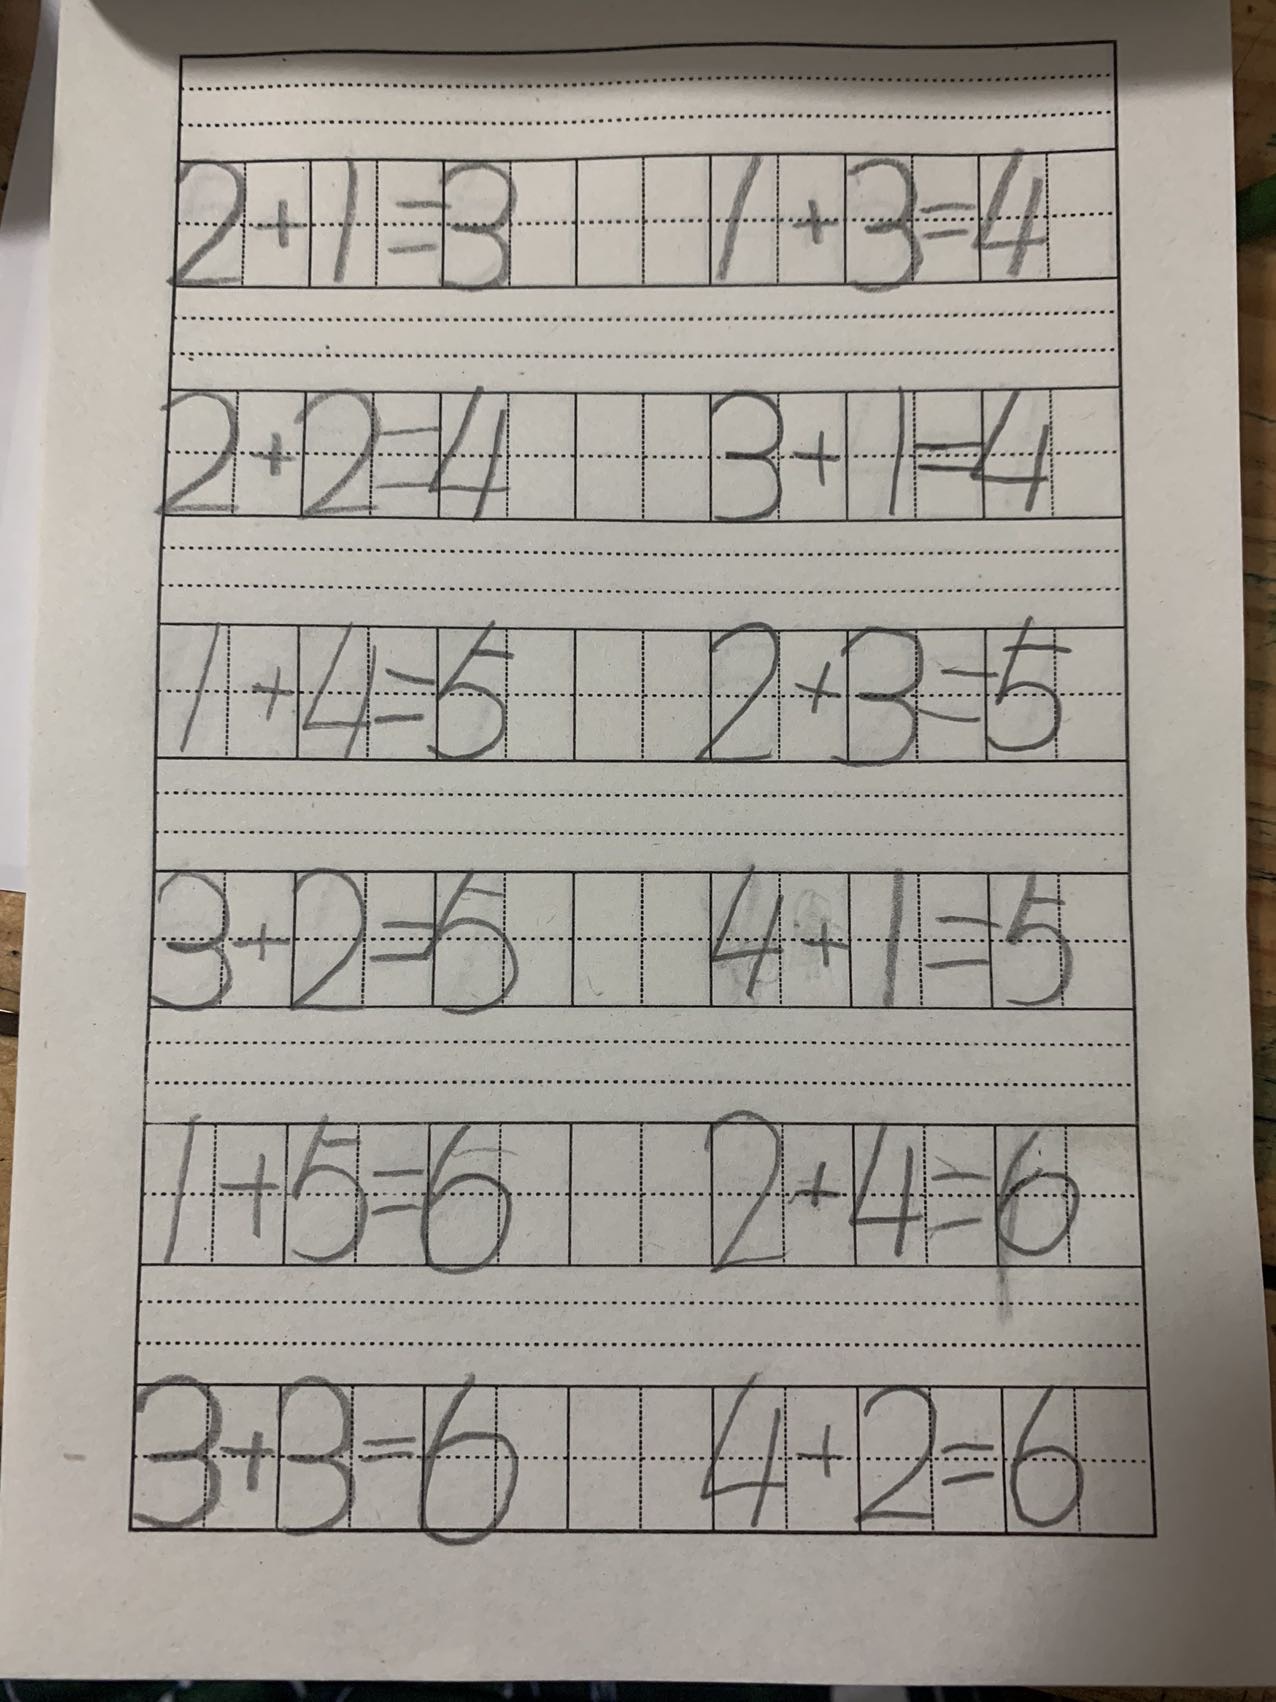 2+1=3 1+3=4
2+2=4 3+1=4
1+4=5 2+3=5
3+2=5 4+1=5
1+5=6 2+4=6
3+3=6 4+2=6